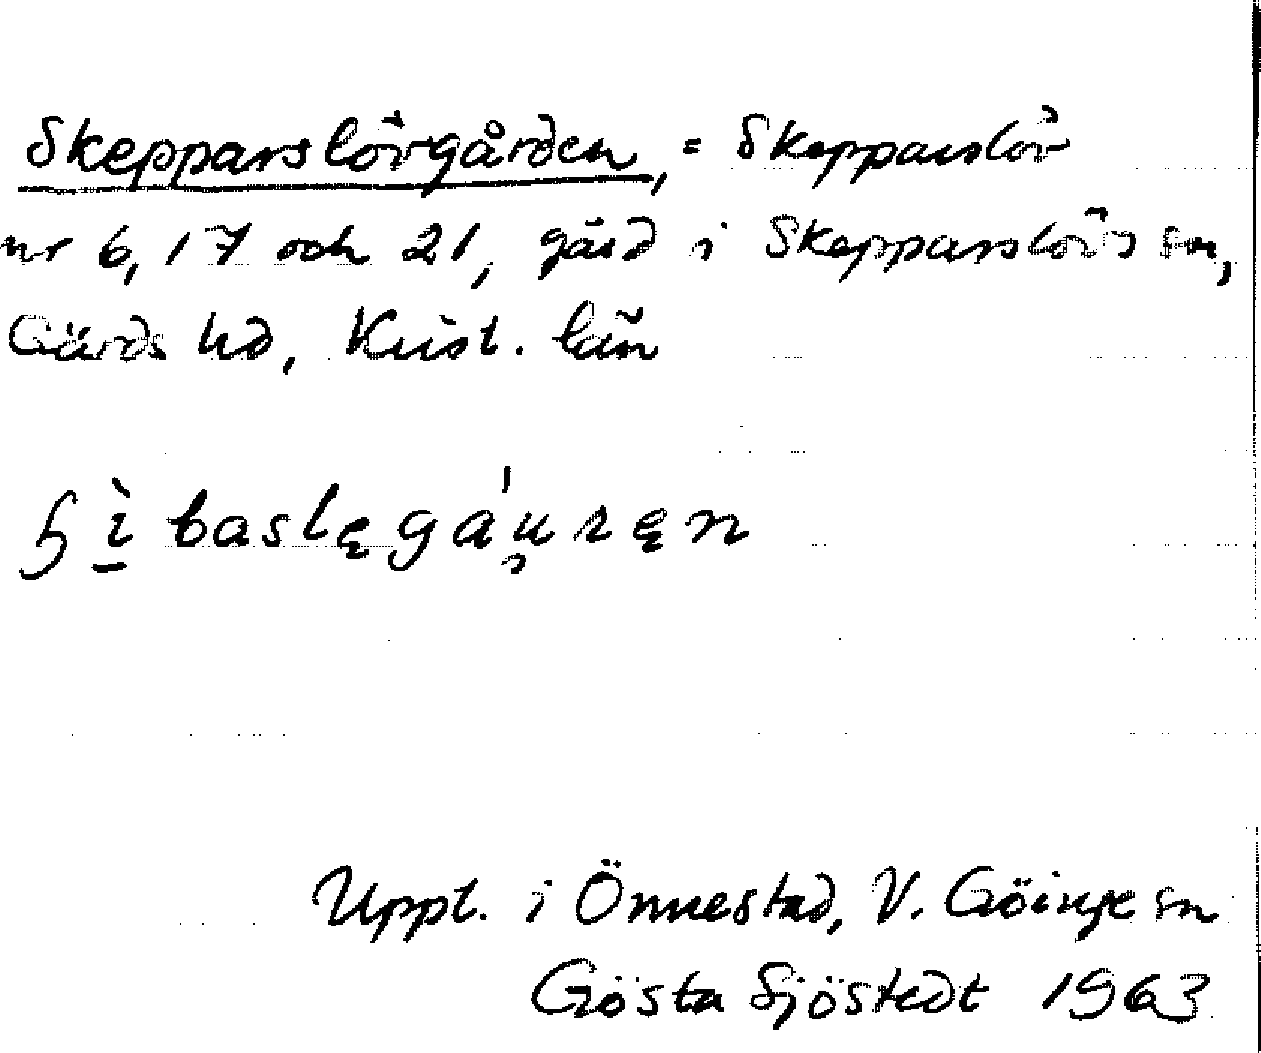 Skepparslövgården, = Skepparslöv
nr 6, 17 och 21, gård i Skepparslövs sn,
Gärds hd, Krist. län
Uppt. i Önnestad, V. Göinge sn
Gösta Sjöstedt 1963